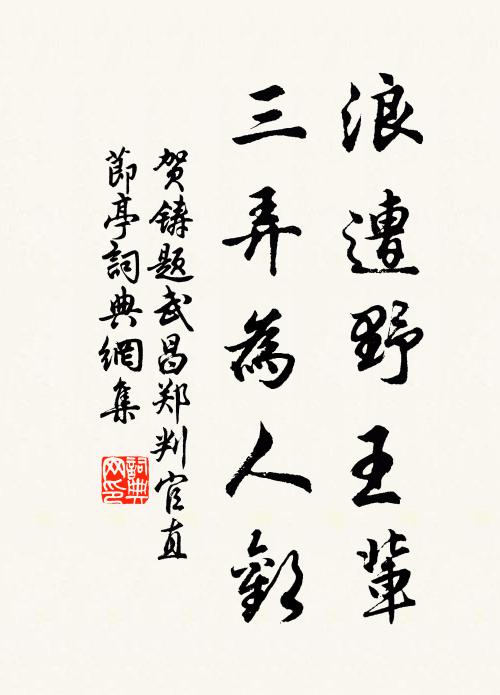 浪遭野王輩
三弄為人歡
贺铸题武昌郑判官直
節亭詞典網集
詞典
网印